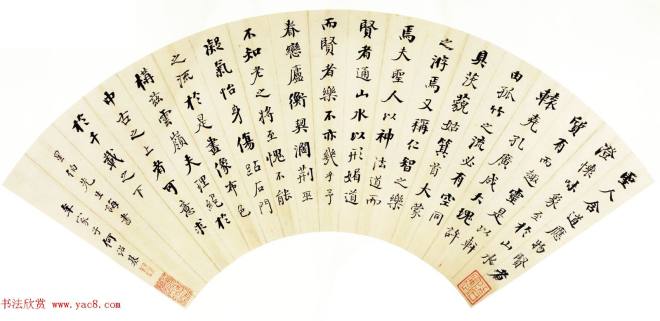 聖人含道應物賢者
澄懷味象至於山水
質有而趣靈是以軒
轅堯孔廣成大隗許
由孤竹之流必有空同
具茨藐姑箕首大蒙
之游焉又稱仁智之樂
焉夫聖人以神法道而
賢者通山水以形媚道
而賢者樂不亦幾乎予
眷戀廬衡契闊荊巫
不知老之將至愧不能
凝氣怡身傷跕石門
之流於是畫像布色
構茲雲嶺夫理絕於
中古之上者可意求
於千載之下
星伯先生誨書
年家子何紹基
书法欣赏 www.yac8.com